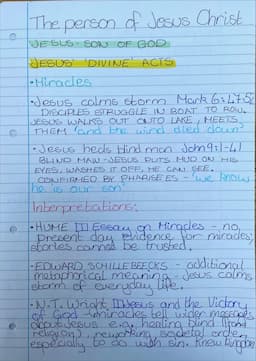 The person of Jesus Christ
JESUS- SON OF GOD
JESUS 'DIVINE' ACTS
•Miracles
•Jesus calms storm Mark 6:47-52
DISCIPLES STRUGGLE IN BOAT TO ROW,
JESUS WALKS OUT ONTO LAKE, MEETS
THEM 'and the wind died down'
•Jesus heals blind man John 9:1-41
BLIND MAN - JESUS PUTS MUD ON HIS
EYES, WASHES IT OFF, HE CAN SEE.
CONFIRMED BY PHARISEES - 'we know
he is our son'
Interpretations:
•HUME Essay on Miracles - no
present day evidence for miracles,
stories cannot be trusted.
•EDWARD SCHILLEBEECKS - additional
metaphorical meaning - Jesus calms
storm of everyday life.
•N.T. Wright Jesus and the Victory
of God - miracles tell wider messages
about Jesus e.g. healing blind (
religion), reworking societal order,
especially to do with sin. New kingdom